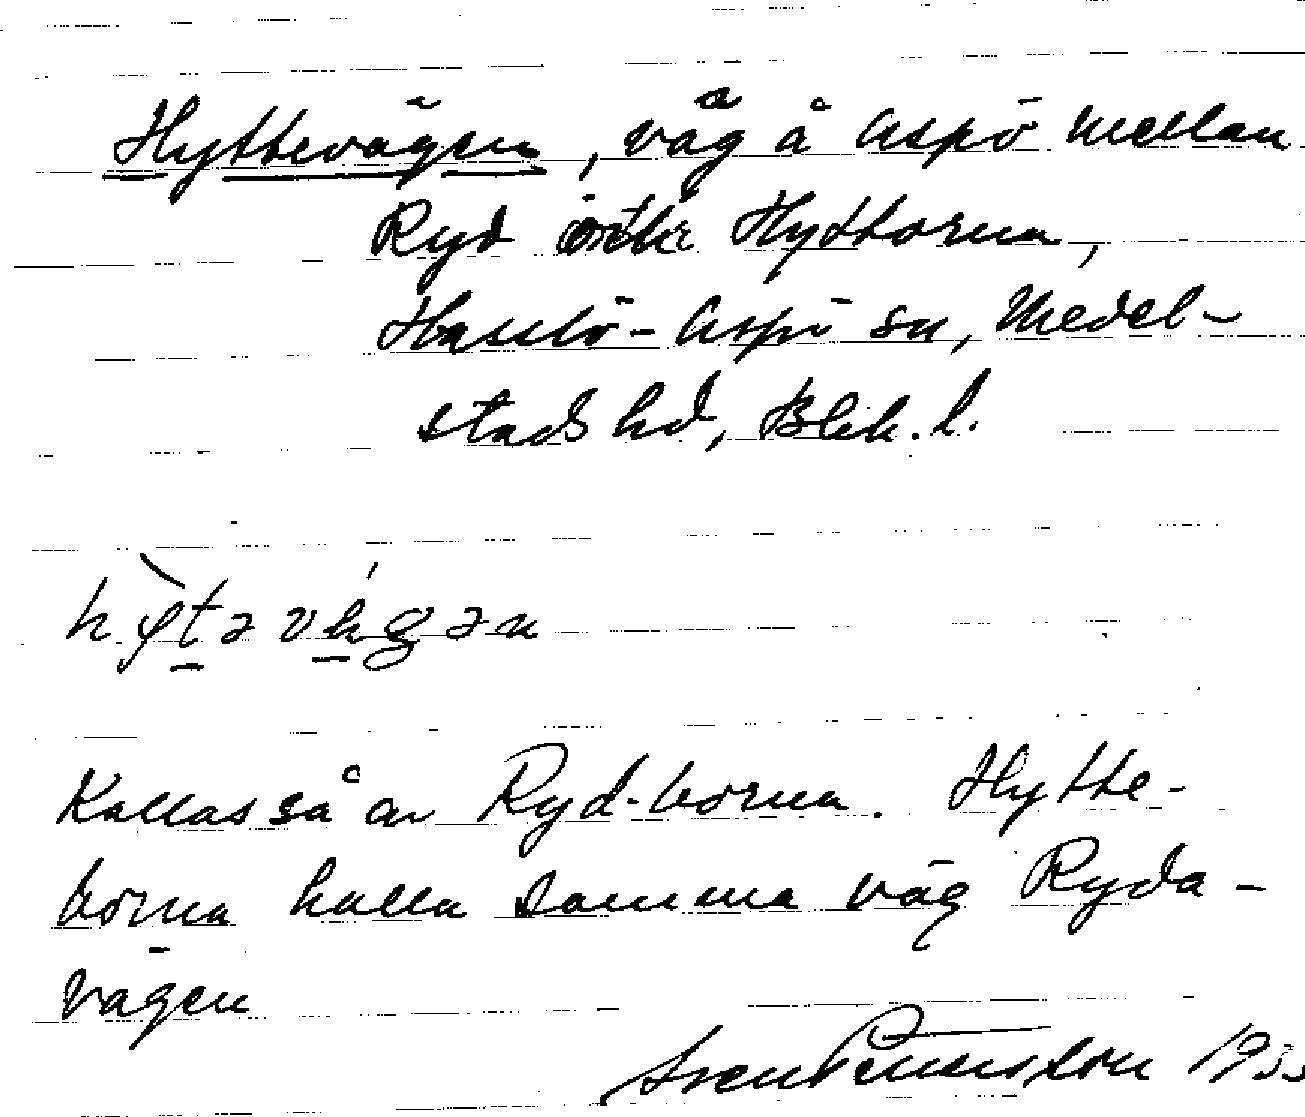 Hyttevägen, väg å Aspö mellan
Ryd och Hyttorna,
Hasslö-Aspö sn, Medel-
stads hd, Blek. l.
Kallas så av Ryd-borna. Hytte-
borna kalla samma väg Ryda-
vägen
Sven Petersson 1933